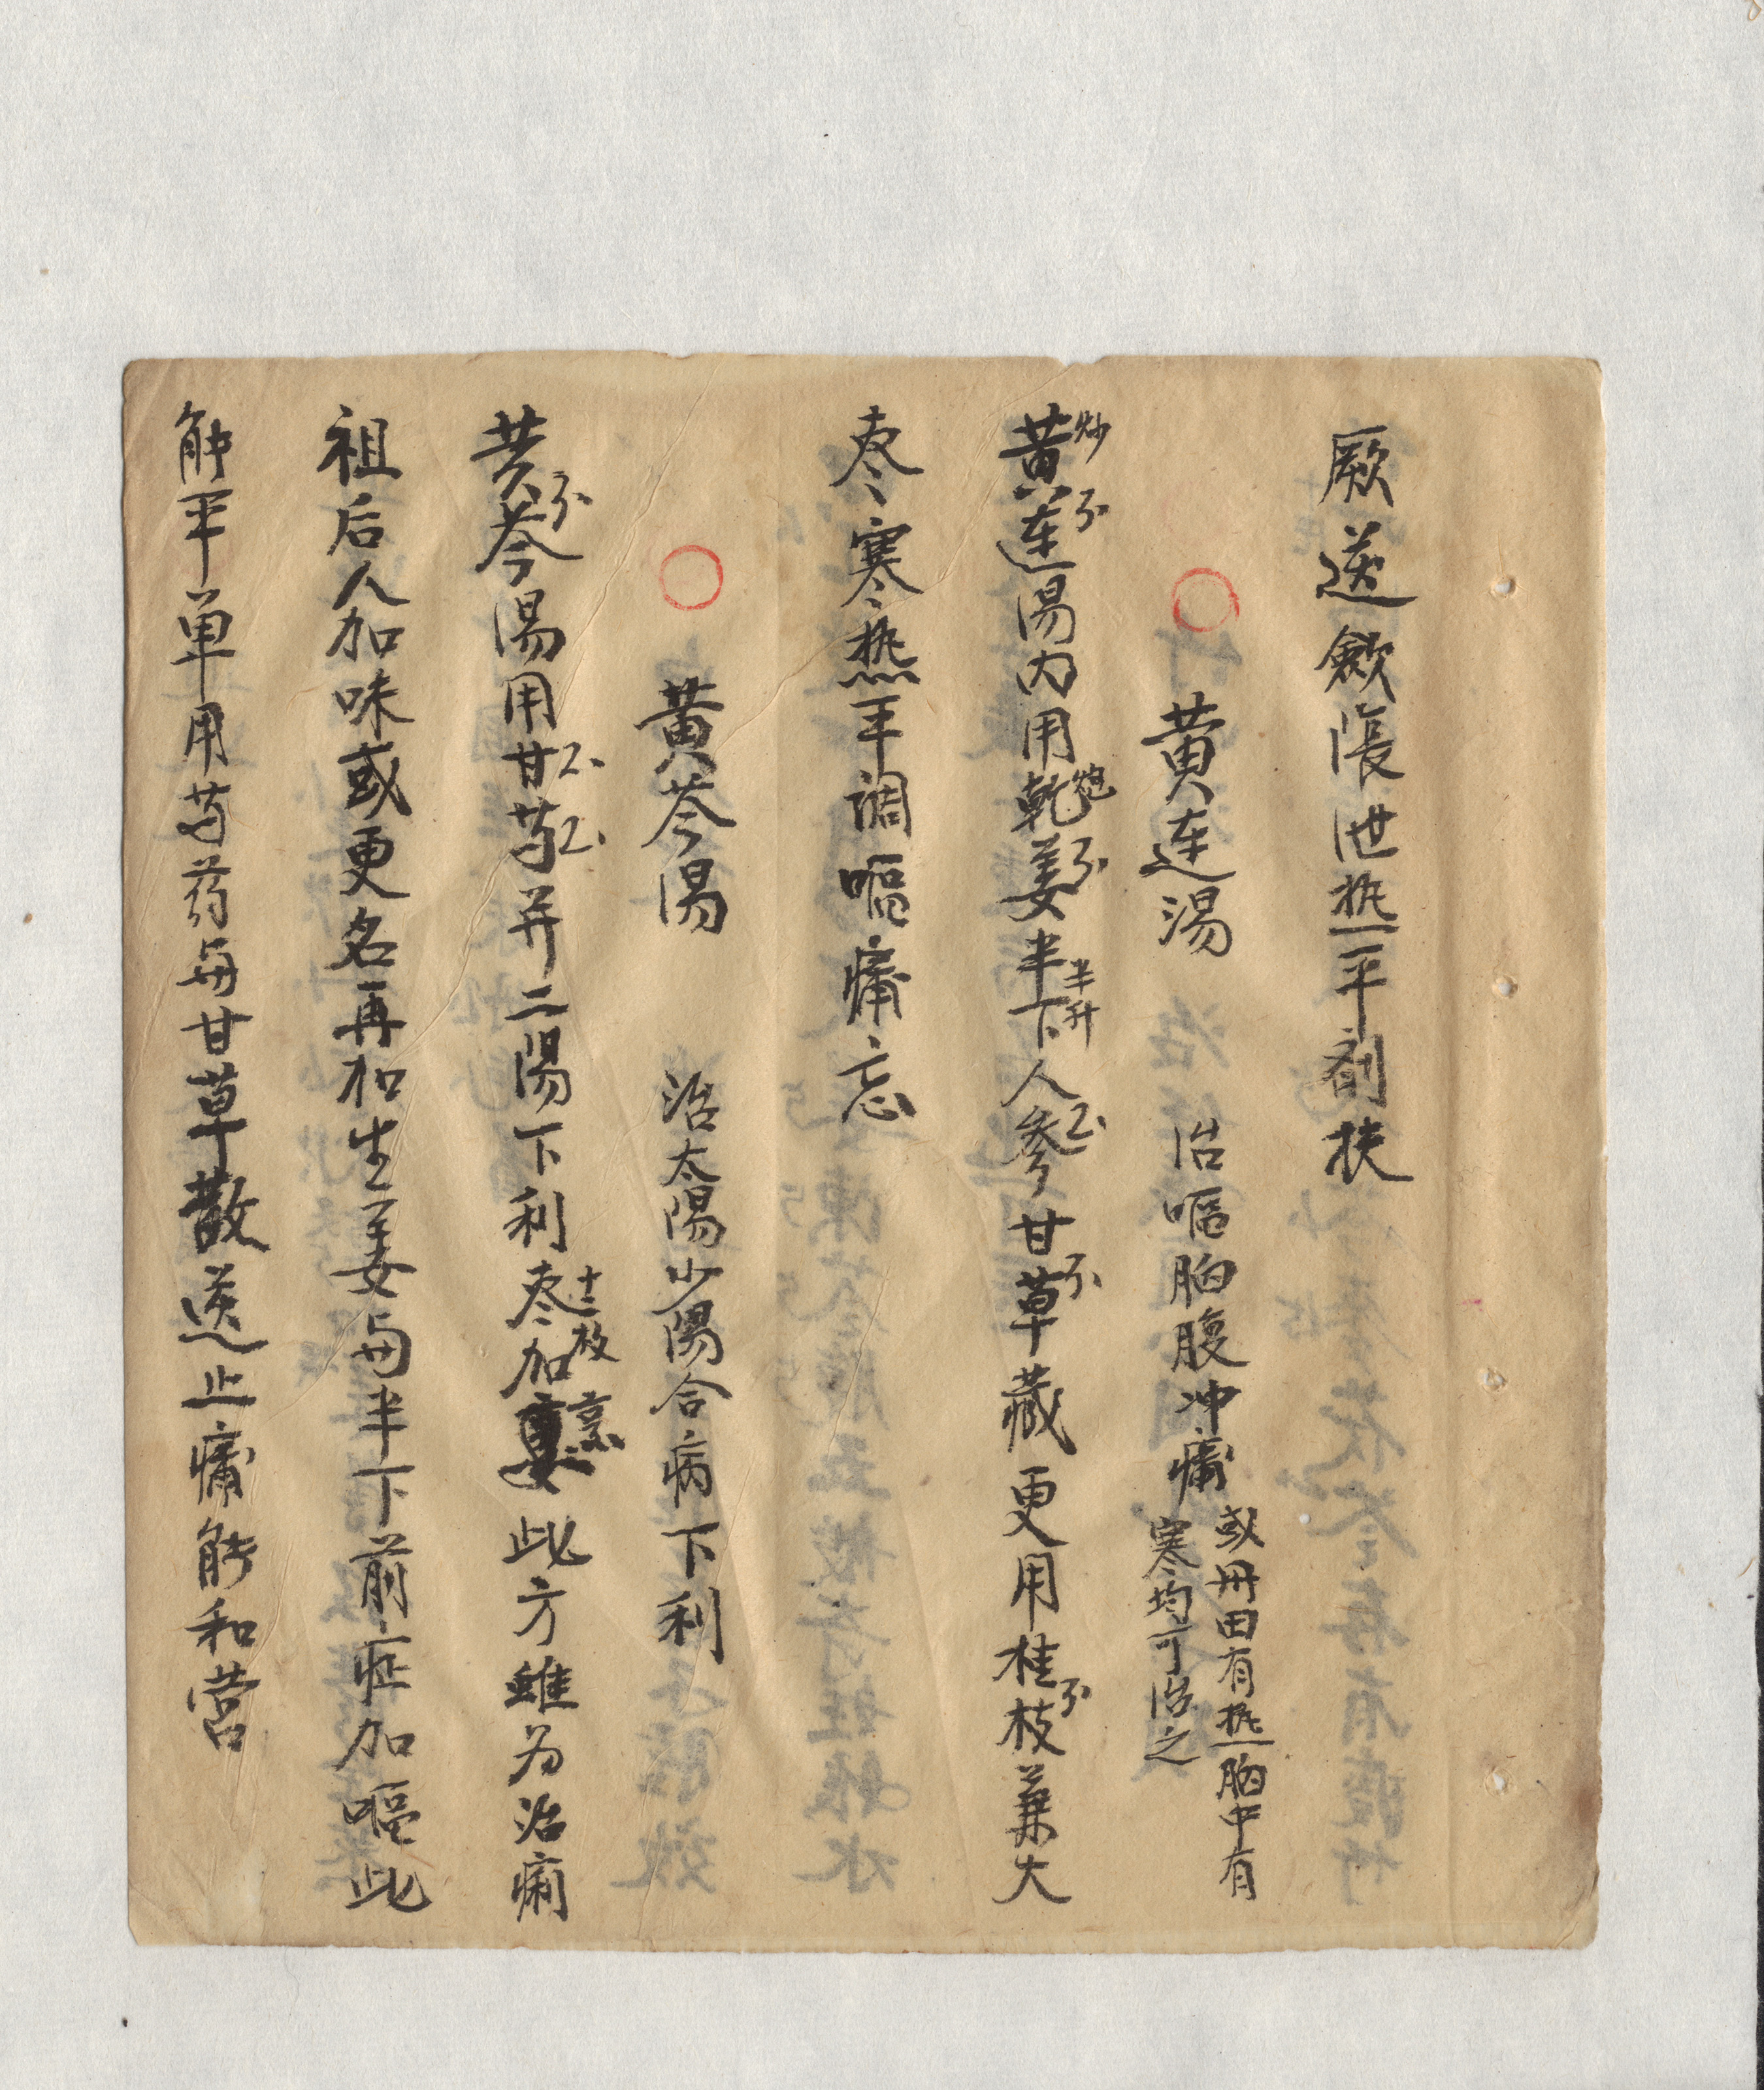 厥逆歛脹泄热平剤扶
黄连湯 治嘔胸腹冲痛
或丹田有热胸中有
寒均可治之
黄连湯内用乾姜半下人參甘草藏更用桂枝兼大
炒 炮 半升
枣寒热平調嘔痛忘
黃芩湯 治太陽少陽合病下利
黄芩湯用甘芍并二陽下利枣加烹此方雖为治痢
十二枚
祖后人加味或更名再加生姜与半下前症加嘔此
能平单用芍药与甘草散逆止痛能和营